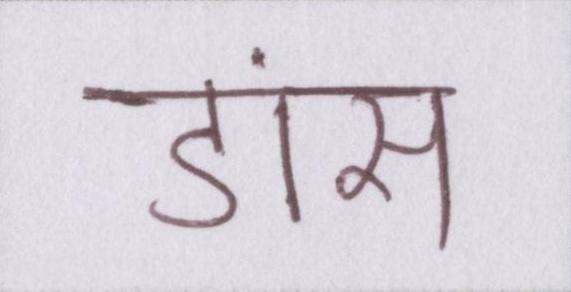 डांस